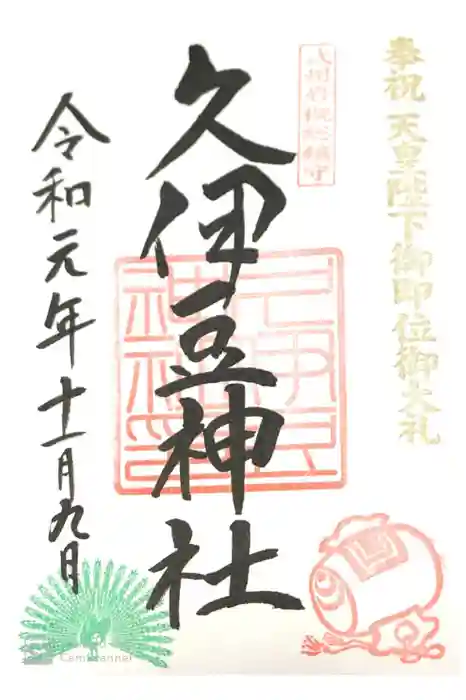 奉祝 天皇陛下御即位御大礼
武州岩槻総鎮守
久伊豆神社
令和元年十一月九日